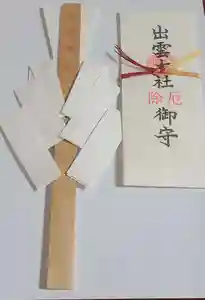 出雲大社御守
除厄